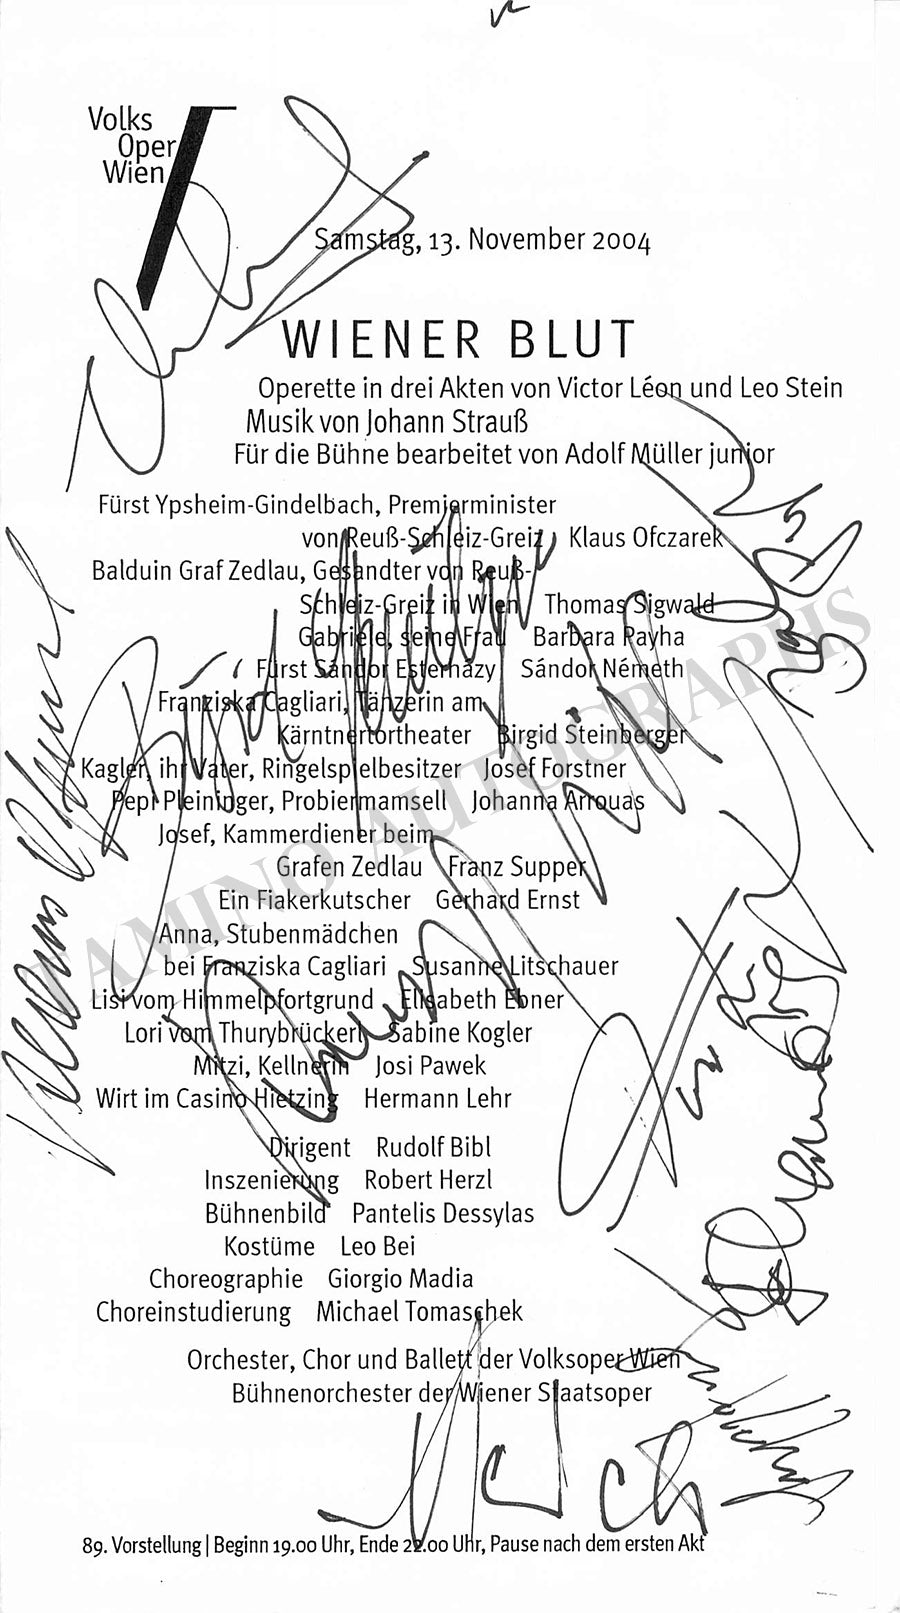 Volks
Oper
Wien
Samstag, 13. November 2004
WIENER BLUT
Operette in drei Akten von Victor Léon und Leo Stein
Musik von Johann Strauß
Für die Bühne bearbeitet von Adolf Müller junior
Fürst Ypsheim-Gindelbach, Premierminister
von Reuß-Schleiz-Greiz Klaus Ofczarek
Balduin Graf Zedlau, Gesandter von Reuß-
Schleiz-Greiz in Wien Thomas Sigwald
Gabriele, seine Frau Barbara Payha
Fürst Sándor Esterházy Sándor Németh
Franziska Cagliari, Tänzerin am
Kärntnertortheater Birgid Steinberger
Kagler, ihr Vater, Ringelspielbesitzer Josef Forstner
Pepi Pleininger, Probiermamsell Johanna Arrouas
Josef, Kammerdiener beim
Grafen Zedlau Franz Supper
Ein Fiakerkutscher Gerhard Ernst
Anna, Stubenmädchen
bei Franziska Cagliari Susanne Litschauer
Lisi vom Himmelpfortgrund Elisabeth Ebner
Lori vom Thurybrückerl Sabine Kogler
Mitzi, Kellnerin Josi Pawek
Wirt im Casino Hietzing Hermann Lehr
Dirigent Rudolf Bibl
Inszenierung Robert Herzl
Bühnenbild Pantelis Dessylas
Kostüme Leo Bei
Choreographie Giorgio Madia
Choreinstudierung Michael Tomaschek
Orchester, Chor und Ballett der Volksoper Wien
Bühnenorchester der Wiener Staatsoper
89. Vorstellung | Beginn 19.00 Uhr, Ende 22.00 Uhr, Pause nach dem ersten Akt
TAMINO AUTOGRAPHS